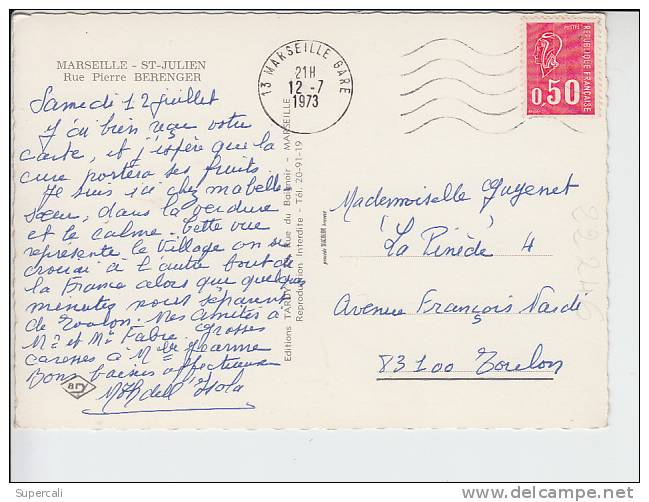 MARSEILLE - ST-JULIEN
Rue Pierre BERENGER
Samedi 12 juillet
J'ai bien reçu votre
carte, et j'espère que la
cure portera ses fruits.
Je suis ici chez ma belle
sœur, dans la verdure
et le calme. Cette vue
représente le Village on se
croirait à l'autre bout de
la France alors que quelques
minutes nous séparent
de Toulon. Mes amitiés à
Mr et Me Fabre. Grosses
caresses à
Bons baisers affectueux
ary
13 MARSEILLE GARE
21H
12 -7
1973
POSTES
REPUBLIQUE FRANÇAISE
0,50
Editions TARDY Rue du Baignoir - MARSEILLE
Reproduction Interdite - Tél. 20-91-19
Mademoiselle Guyenet
La Pinède 4
Avenue François Nardi
83100 Toulon
Supercali
delcampe.net